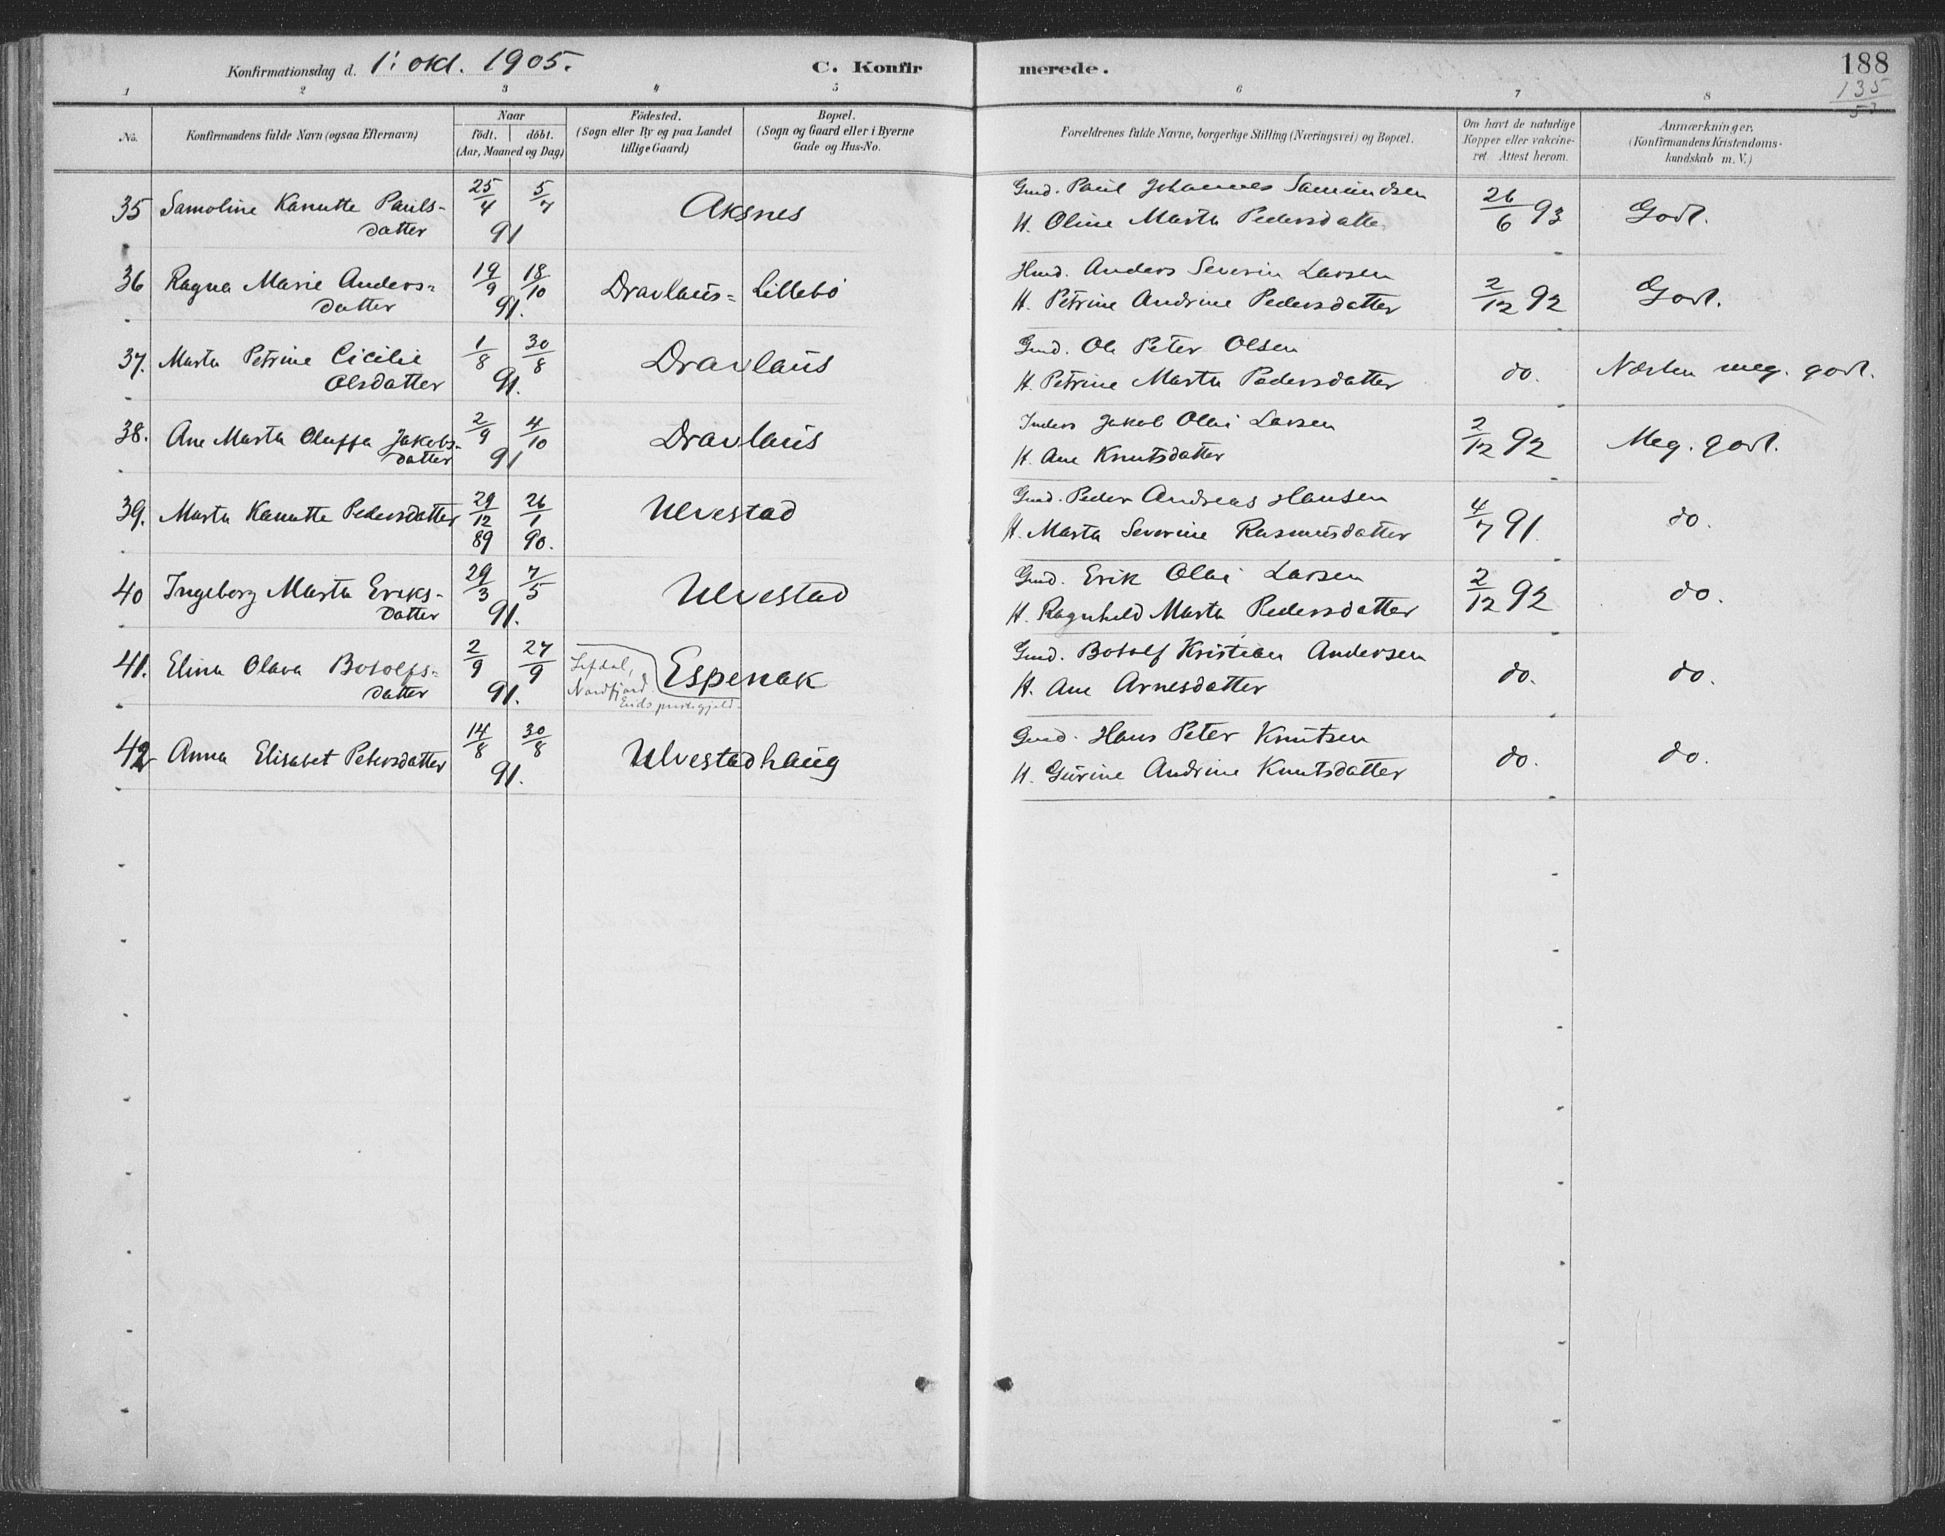 Konfirmationsdag d. 1' okt. 1905. C. Konfirmerede. 188
135
53
1 2 3 4 5 6 7 8
No. Konfirmandens fulde Navn (ogsaa Efternavn) Naar født. døbt. (Aar, Maaned og Dag) Fødested. (Sogn eller By og paa Landet tillige Gaard) Bopæl. (Sogn og Gaard eller i Byerne Gade og Hus-No. Forældrenes fulde Navne, borgerlige Stilling (Næringsvei) og Bopæl. Om havt de naturlige Kopper eller vakcineret Attest herom. Anmærkninger. (Konfirmandens Kristendomskundskab m. V.)
35 Samoline Kanutte Pauls- 25/4 5/7 Aksnes Gmd. Paul Johannes Samundsen 26/6 93 Godt.
datter 91 H. Oline Marta Pedersdatte
36 Ragna Marie Anders= 19/9 18/10 Dravlaus= Lillebø Hmd. Anders Severin Larsen 2/12 92 Godt.
datter 91. H. Petrine Andrine Pedersdatter
37. Marta Petrine Cicilie 1/8 30/8 Dravlaus Gmd. Ole Peter Olsen do. Næsten meg. godt.
Olsdatter 91. H. Petrine Marta Pedersdatter
38. Ane Marta Oluffa Jakobs- 2/9 4/10 Dravlaus Inders Jakob Olai Larsen 2/12 92 Meg. godt.
datter 91 H. Ane Knutsdatter
39. Marta Kanutte Pedersdatter 29/12 26/1 Ulvestad Gmd. Peder Andreas Hansen 4/7 91. do.
89 90. H. Marta Severine Rasmusdatter
40 Ingeborg Marta Eriks- 29/3 7/5 Ulvestad Gmd. Erik Olai Larsen 2/12 92 do.
datter 91. H. Ragnhild Marta Pedersdatter
41. Elina Olava Botolfs- 2/9 27/9 Lefdal, Espenak Gmd. Botolf Kristian Andersen do. do.
datter 91. Nordfjord. H. Ane Arnesdatter
Eids prestegjeld.
42 Anna Elisabet Petersdatter 14/8 30/8 Ulvestadhaug Gmd. Hans Peter Knutsen do. do.
91. H. Gurine Andrine Knutsdatter